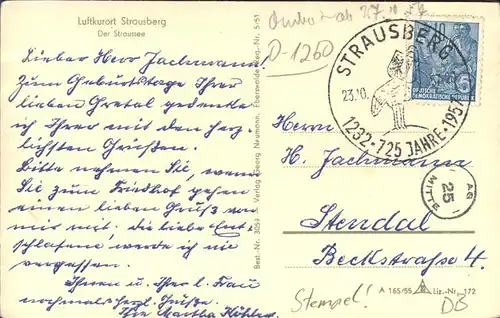 Luftkurort Strausberg
Der Straussee
Lieber Herr Jachmann
Zum Geburtstage Ihrer
lieben Gretal gedenke
ich Ihrer mit den herz-
lichsten Grüßen.
Bitte nehmen Sie, wenn
Sie zum Friedhof gehen
einen lieben Gruß von
mir mit; die liebe Ent-
schlafene werde ich nie
vergessen.
Ihnen u. Ihrer l. Frau
nochmals herzl. Grüße.
Ihre Martha Köhler
Best.-Nr. 3059 Verlag Georg Neumann, Eberswalde Reg.-Nr. 5/51
D-1260
STRAUSBERG
23.10.
1232 · 725 JAHRE · 1957
DEUTSCHE
DEMOKRATISCHE REPUBLIK
Herrn
H. Jachmann
AG
25
MITTE
Stendal
Beckstraße 4.
Stempel!
A 165/55 Liz.-Nr. 172
DB